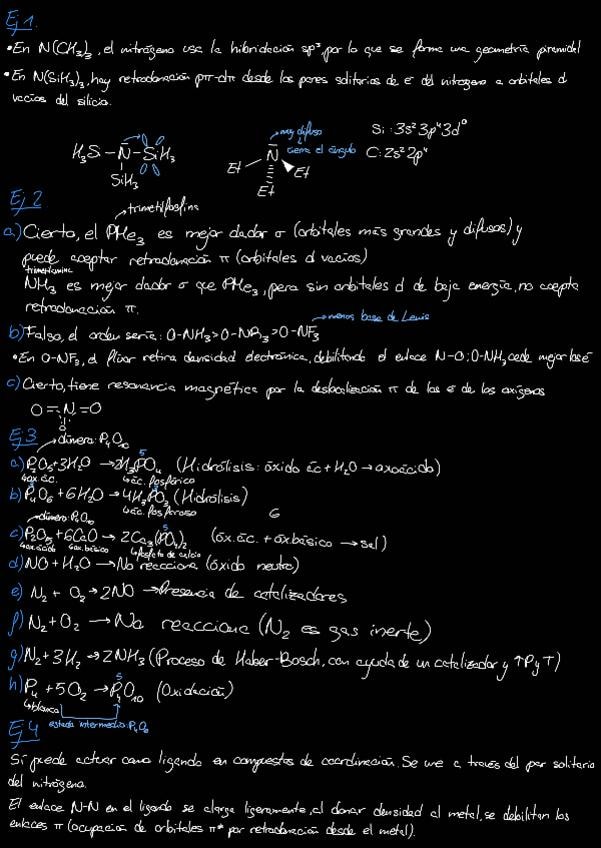 Ej 1.
• En N(CH₃)₃, el nitrógeno usa la hibridación sp³, por lo que se forma una geometría piramidal
• En N(SiH₃)₃, hay retrodonación pπ-dπ desde los pares solitarios de e⁻ del nitrógeno a orbitales d
vacíos del silicio.
muy difuso
cierra el ángulo
Si: 3s² 3p⁴ 3d⁰
C: 2s² 2p⁴
H₃S – N – SiH₃
SiH₃
N
Et
Et
Et
Ej 2
trimetilfosfina
a) Cierto, el PMe₃ es mejor dador σ (orbitales más grandes y difusos) y
puede aceptar retrodonación π (orbitales d vacíos)
trimetilamina
NH₃ es mejor dador σ que PMe₃, pero sin orbitales d de baja energía, no acepta
retrodonación π.
menos base de Lewis
b) Falso, el orden sería: O-NH₃ > O-NR₃ > O-NF₃
• En O-NF₃, el flúor retira densidad electrónica, debilitando el enlace N-O; O-NH₃ cede mejor
c) Cierto, tiene resonancia magnética por la deslocalización π de los e⁻ de los oxígenos
O = N = O
O
Ej 3
dímero: P₄O₁₀
a) P₂O₅ + 3H₂O → 2H₃PO₄ (Hidrólisis: óxido ác + H₂O → oxoácido)
5
ox. ác.
ác. fosfórico
b) P₄O₆ + 6H₂O → 4H₃PO₃ (Hidrólisis)
ác. fosforoso
6
dímero: P₄O₁₀
c) P₂O₅ + 6CaO → 2Ca₃(PO₄)₂ (óx. ác. + óx básico → sal)
5
ox. ácido
ox. básico
fosfato de calcio
d) NO + H₂O → No reacciona (óxido neutro)
e) N₂ + O₂ → 2NO → Presencia de catalizadores
f) N₂ + O₂ → No reacciona (N₂ es gas inerte)
g) N₂ + 3H₂ → 2NH₃ (Proceso de Haber-Bosch, con ayuda de un catalizador y ↑P y T)
h) P₄ + 5O₂ → P₄O₁₀ (Oxidación)
5
blanco
estado intermedio: P₄O₆
Ej 4
Sí puede actuar como ligando en compuestos de coordinación. Se une a través del par solitario
del nitrógeno.
El enlace N-N en el ligando se alarga ligeramente, al donar densidad al metal, se debilitan los
enlaces π (ocupación de orbitales π* por retrodonación desde el metal).